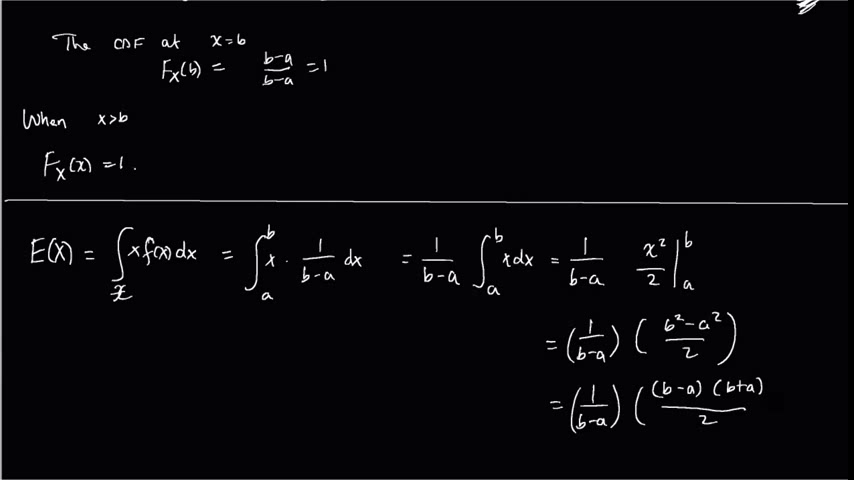 The CDF at x=b
F_X(b) = \frac{b-a}{b-a} = 1
When x>b
F_X(x) = 1.
E(X) = \int_{\mathcal{X}} x f(x) dx = \int_a^b x \cdot \frac{1}{b-a} dx = \frac{1}{b-a} \int_a^b x dx = \frac{1}{b-a} \frac{x^2}{2} |_a^b
= (\frac{1}{b-a}) (\frac{b^2-a^2}{2})
= (\frac{1}{b-a}) (\frac{(b-a)(b+a)}{2}